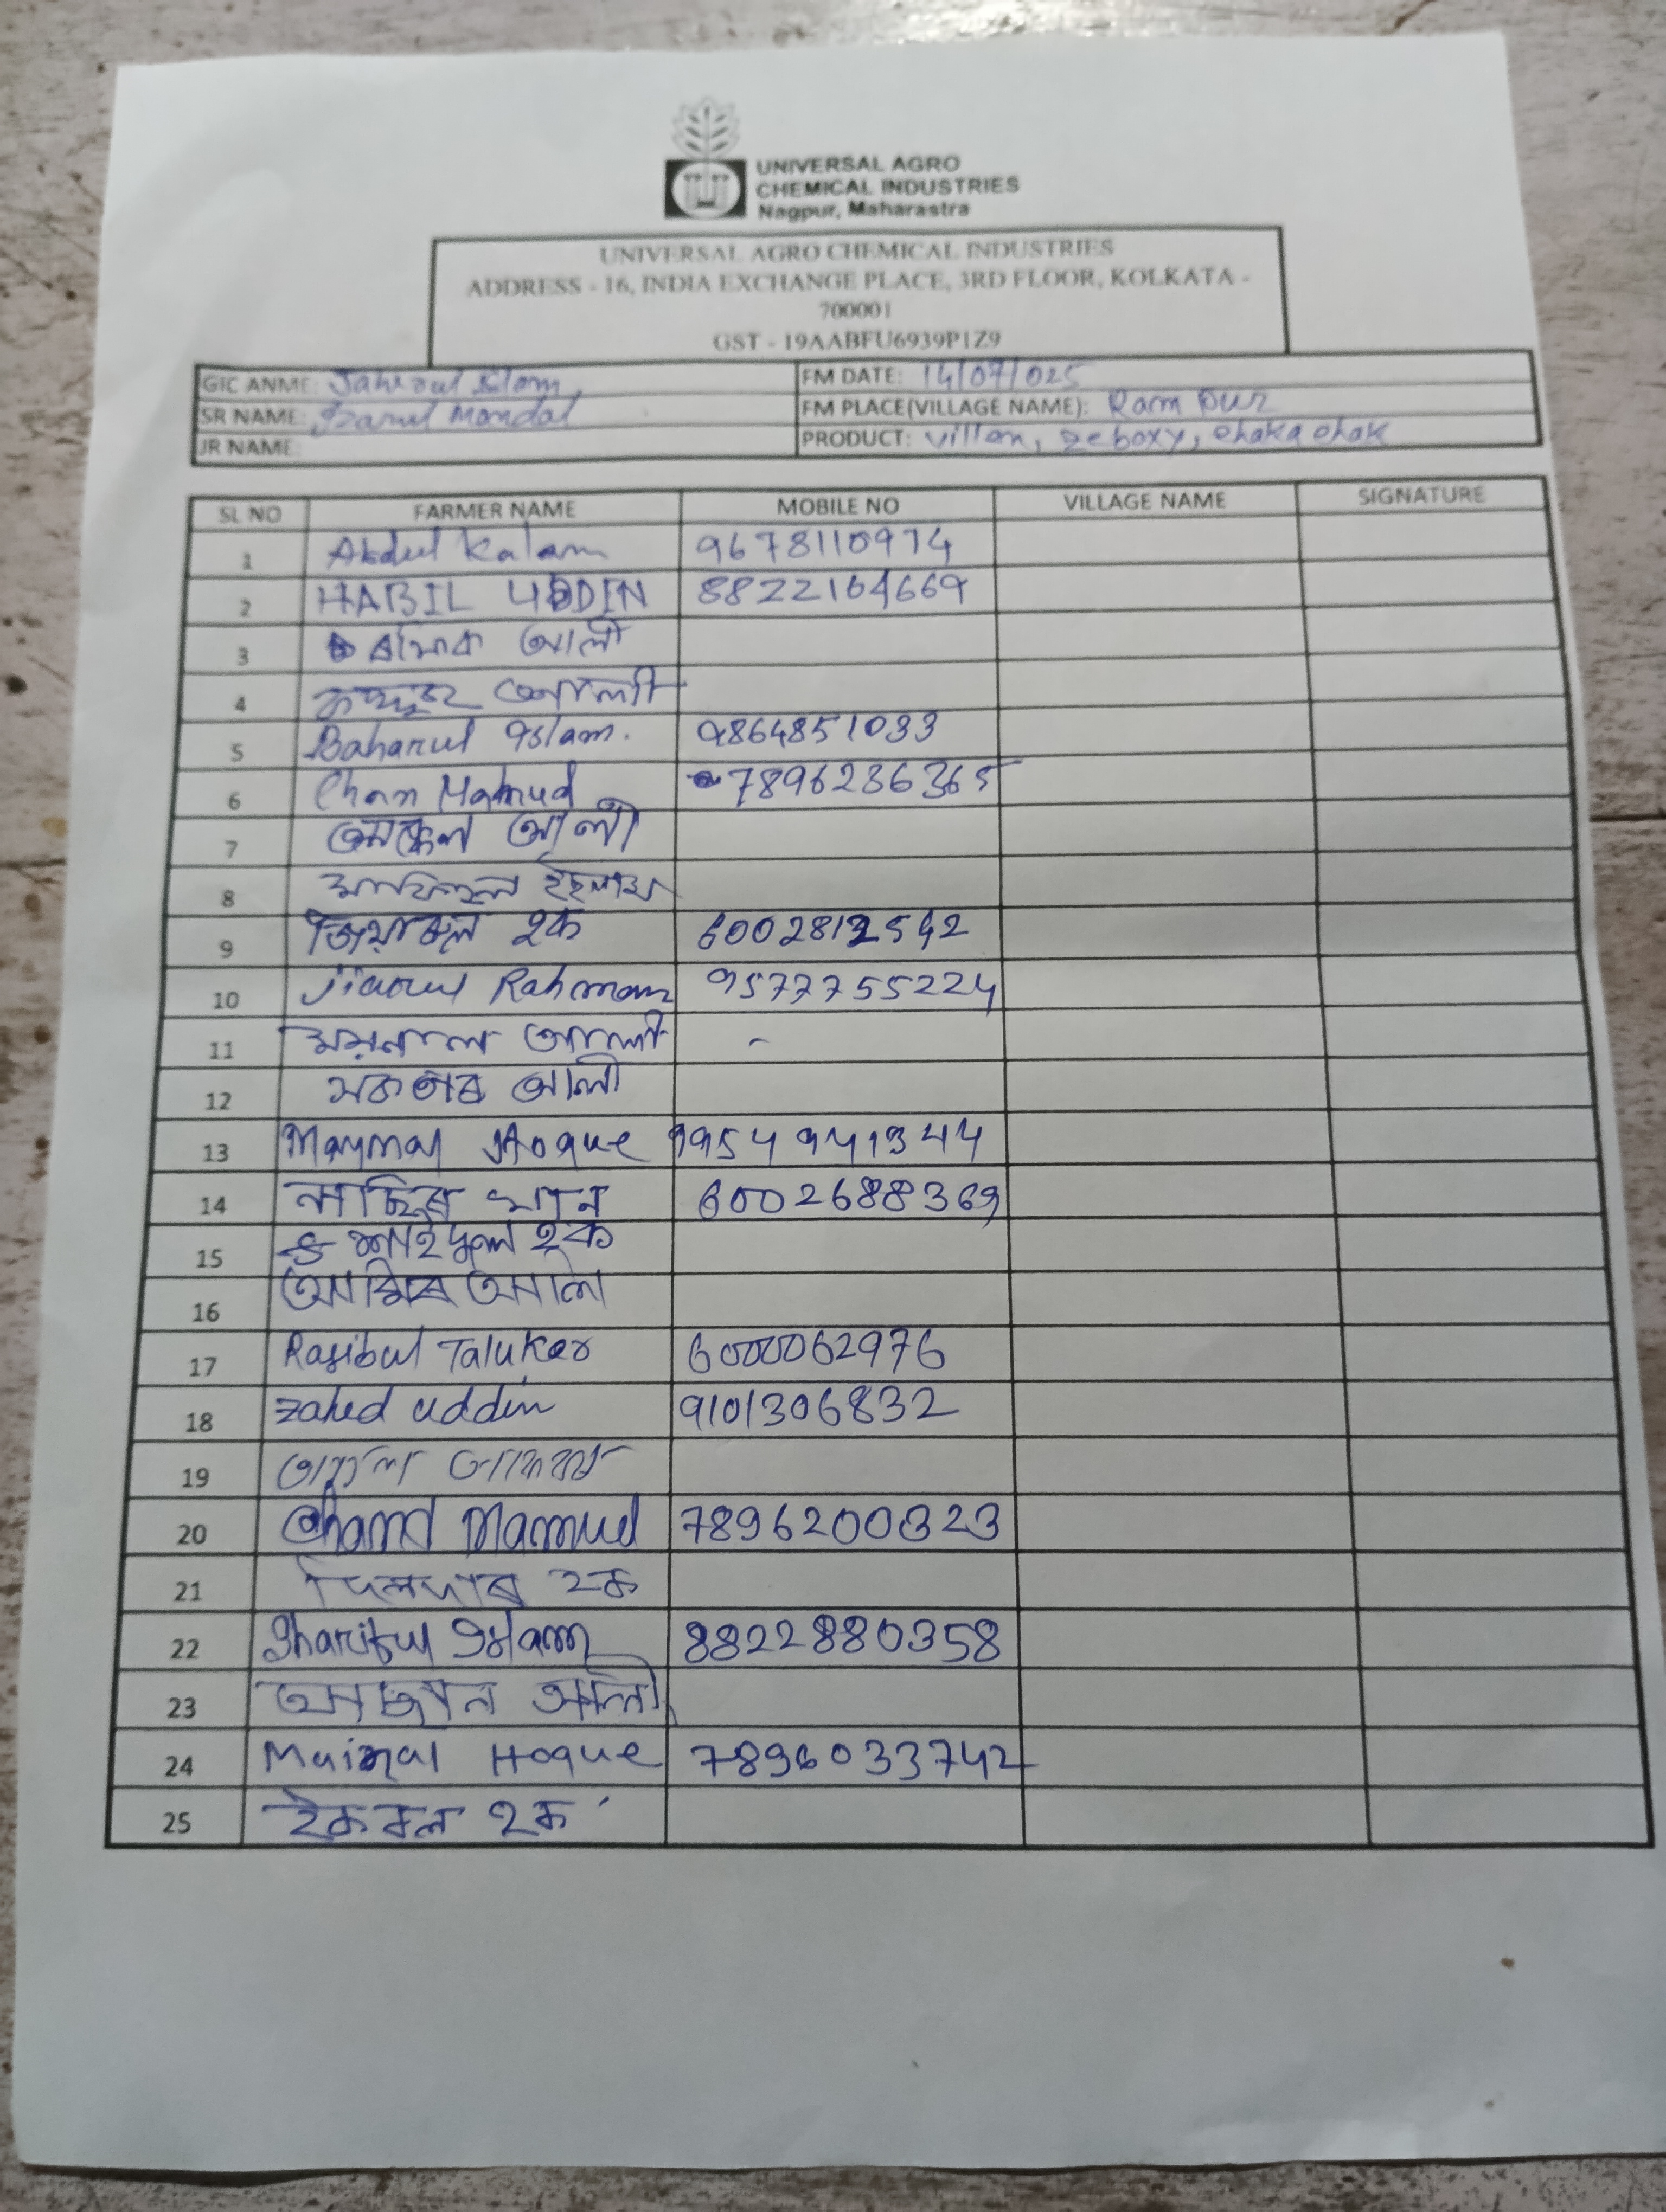 UNIVERSAL AGRO
CHEMICAL INDUSTRIES
Nagpur, Maharastra
UNIVERSAL AGRO CHEMICAL INDUSTRIES
ADDRESS - 16, INDIA EXCHANGE PLACE, 3RD FLOOR, KOLKATA -
700001
GST - 19AABFU6939P1Z9
GIC ANME: Jahirul Islam FM DATE: 14/07/025
SR NAME: Mondal FM PLACE(VILLAGE NAME): Rampur
JR NAME: PRODUCT: villan, zeboxy, chakachak
SL NO FARMER NAME MOBILE NO VILLAGE NAME SIGNATURE
1 Abdul Kalam 9678110974
2 HABIL UDDIN 8822164669
3 ৰফিক আলী
4 আলী
5 Baharul Islam. 9864851033
6 Chan Mahmud 7896236365
7 আলী
8 ইছলাম
9 জিয়াৰুল হক 6002812542
10 Jiaorul Rahman 9577755224
11 ময়নাল আলী -
12 আলী
13 Maynal Hoque 9954941344
14 নাছিৰ খান 6002688369
15 শাইদুল হক
16 আমিৰ আলি
17 Rajibul Taluker 6000062976
18 Zahed uddin 9101306832
19
20 Chand Mamud 7896200323
21 দিলদাৰ হক
22 Shariful Islam 8822880358
23 আজান আলী
24 Mainal Hoque 7896033742
25 হক